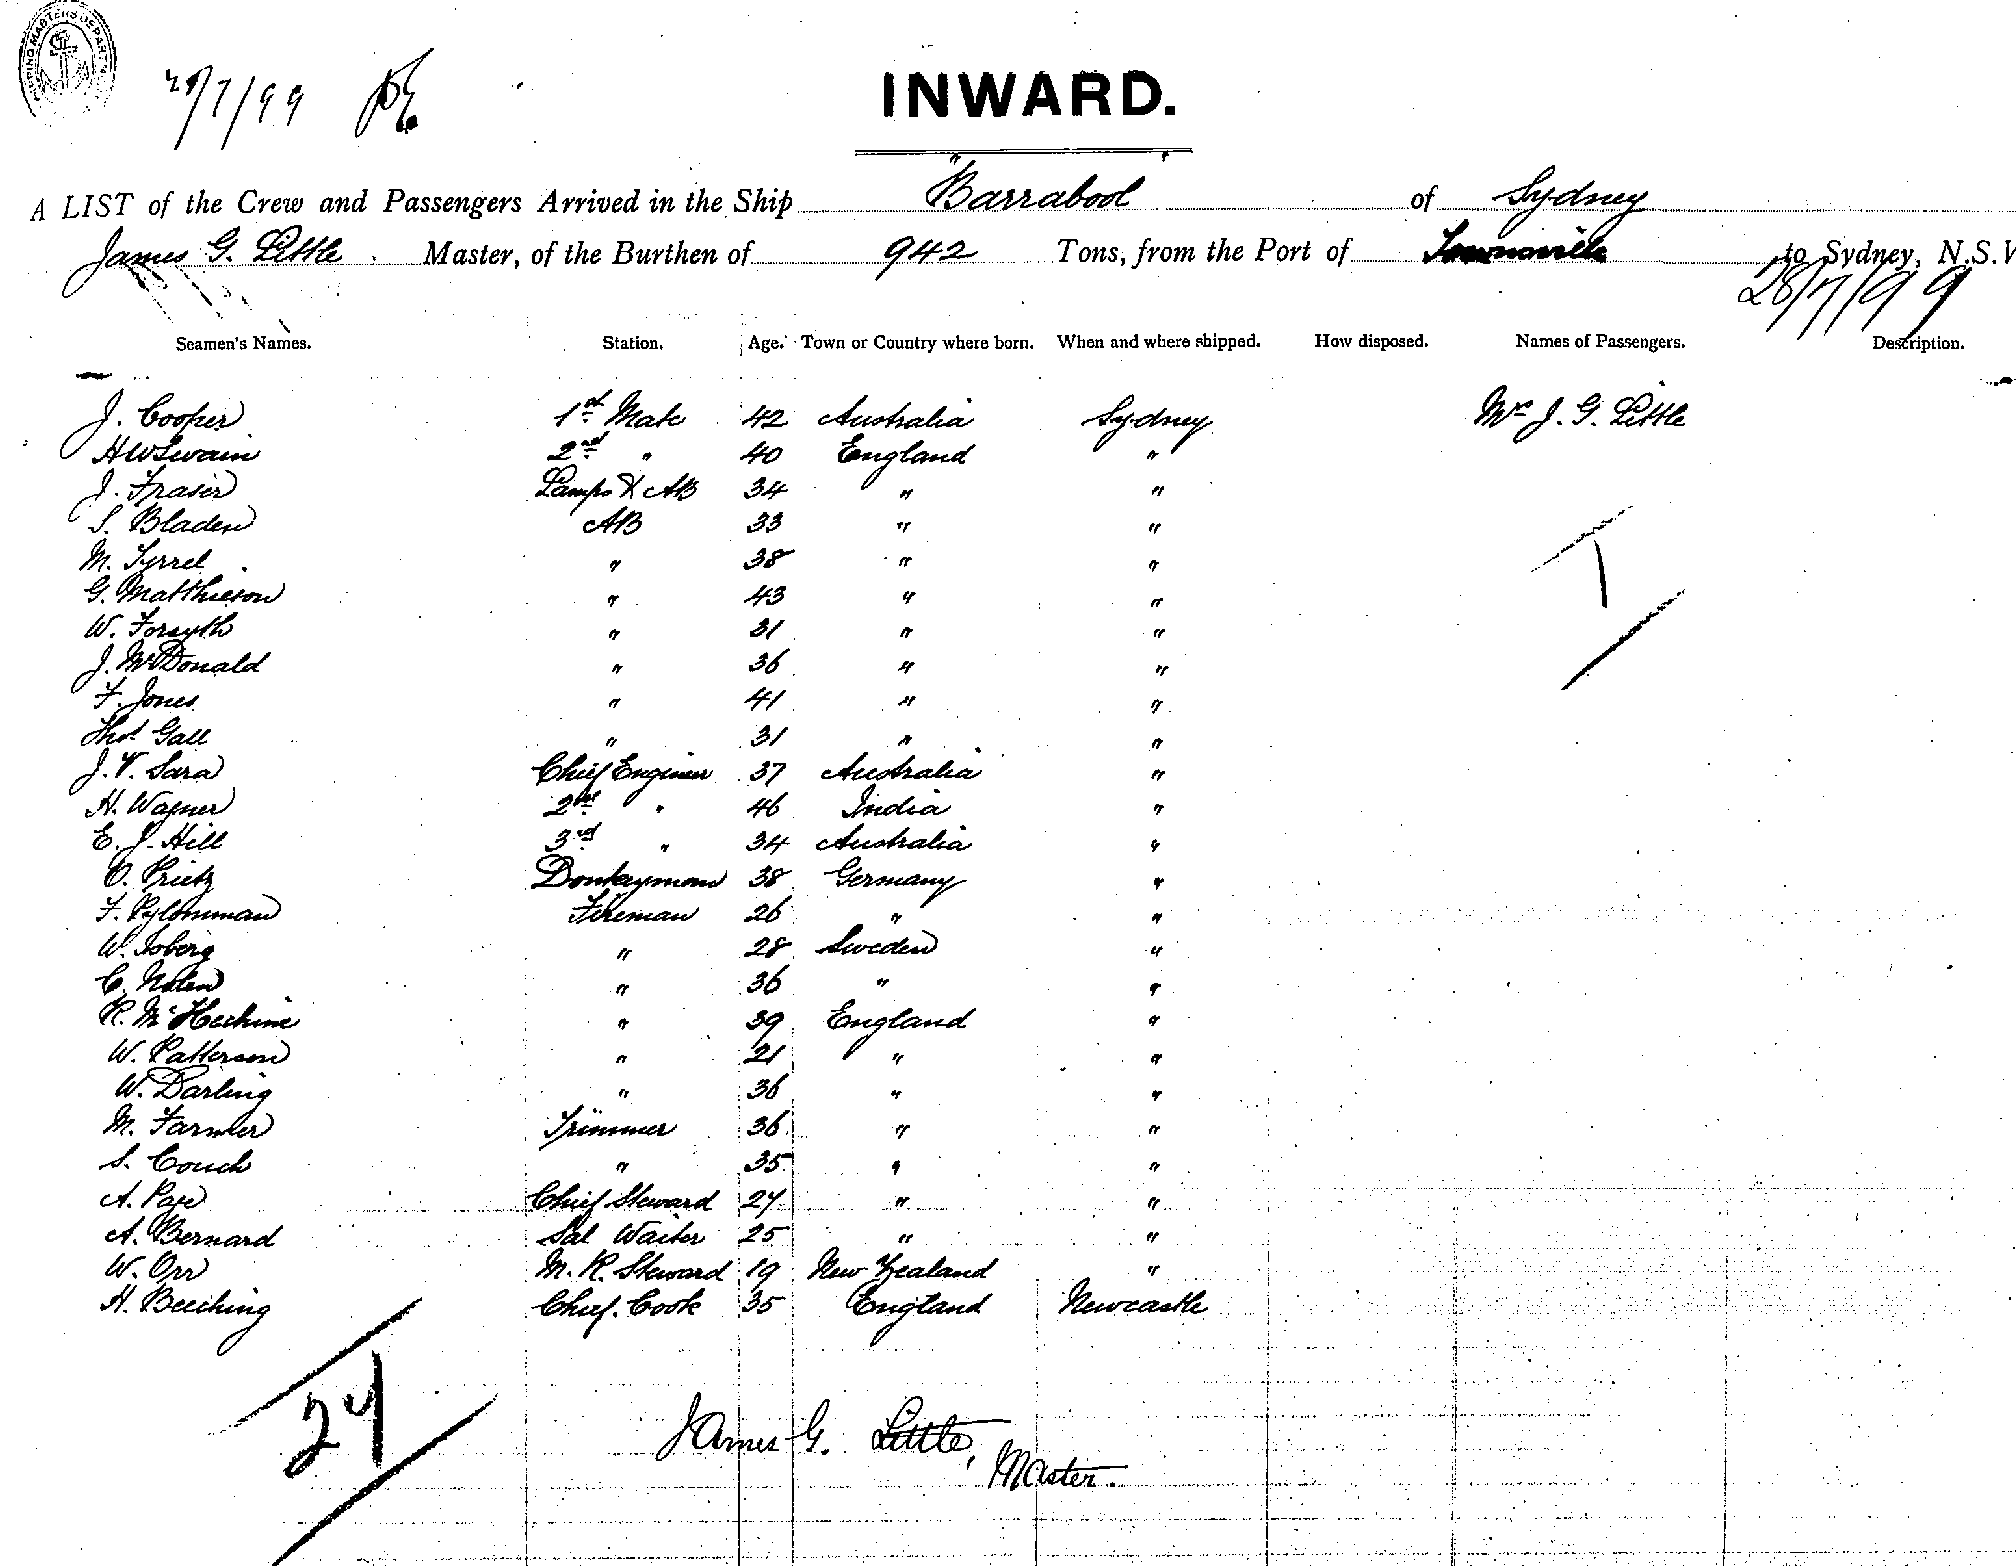 SHIPPING MASTERS DEPART
29/7/99
INWARD.
A LIST of the Crew and Passengers Arrived in the Ship "Barrabool" of Sydney
James G. Little Master, of the Burthen of 942 Tons, from the Port of Townsville to Sydney, N.S.W
28/7/99
Seamen's Names. Station. Age. Town or Country where born. When and where shipped. How disposed. Names of Passengers. Description.
J. Cooper 1st Mate 42 Australia Sydney Mrs J. G. Little
H W Swain 2nd " 40 England "
J. Fraser Lamps & AB 34 " "
S. Bladen AB 33 " "
M. Tyrrel " 38 " "
G. Matthieson " 43 " "
W. Forsyth " 31 " "
J. McDonald " 36 " "
F. Jones " 41 " "
Thos Gall " 31 " "
J. V. Sara Chief Engineer 37 Australia "
H. Wagner 2nd " 46 India "
E. J. Hill 3rd " 34 Australia "
O. Prietz Donkeyman 38 Germany "
F. Fireman 26 " "
W. Soberg " 28 Sweden "
C. Nolen " 36 " "
R. " 39 England "
W. Patterson " 21 " "
W. Darling " 36 " "
M. Farmer Trimmer 36 " "
S. Couch " 35 " "
A. Page Chief Steward 27 " "
A. Bernard Sal Waiter 25 " "
W. Orr M. R. Steward 19 New Zealand "
H. Beeching Chief. Cook 35 England Newcastle
1
27
James G. Little,
Master.